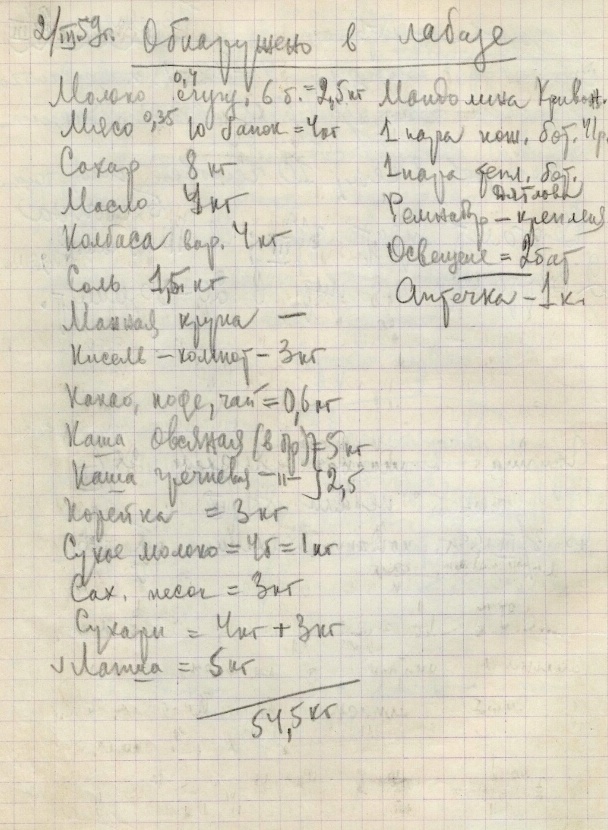 2/III 59г. Обнаружено в лабазе
Молоко 0,4 сгущ. 6 б. = 2,5 кг
Мясо 0,35 10 банок = 4 кг
Сахар 8 кг
Масло 4 кг
Колбаса вар. 4 кг
Соль 1,5 кг
Манная крупа —
Кисель – компот – 3 кг
Какао, кофе, чай = 0,6 кг
Каша овсяная (в бр) = 5 кг
Каша гречневая –"– 2,5
Корейка = 3 кг
Сухое молоко = 4б = 1 кг
Сах. песок = 3 кг
Сухари = 4 кг + 3 кг
√ Лапша = 5 кг
54,5 кг
Мандолина Кривон.
1 пара бот.
1 пара тепл. бот.
Дятлова
крепления
Освещене = 2 бат
Аптечка – 1 кг